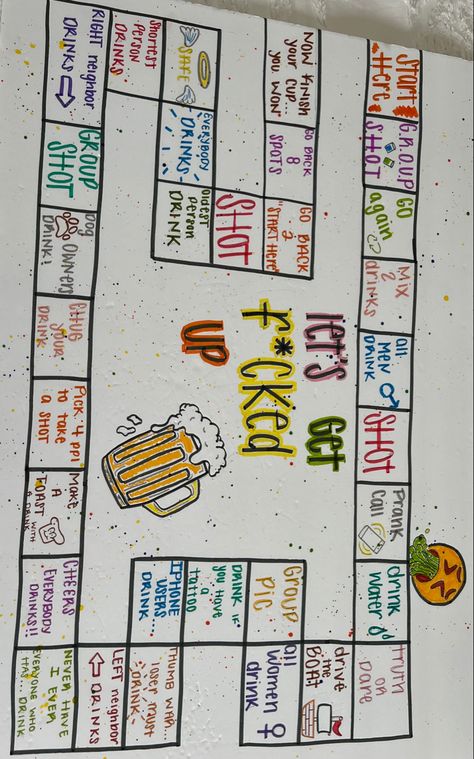 START
HERE
GROUP
SHOT
GO
again
MIX
2
drinks
all
MEN
DRINK
SHOT
Prank
Call
drink
water
truth
or
Dare
drive
the
BOAT
all
WOMEN
drink
Group
Pic
DRINK IF
you have
a
tattoo
IPHONE
USERS
DRINK...
THUMB WAR...
loser must
DRINK
LEFT neighbor
DRINKS
NEVER HAVE
I EVER
EVERYONE WHO
HAS... DRINK
CHEERS
EVERYBODY
DRINKS!!
Make
A
TOAST WITH
A DRINK
Pick 4 ppl
to take
a SHOT
CHUG
YOUR
DRINK
Dog
OWNERS
DRINK!
GROUP
SHOT
RIGHT neighbor
DRINKS
Shortest
Person
DRINKS
SAFE
EVERYBODY
DRINKS
Oldest
person
DRINK
SHOT
GO BACK
2
"START HERE"
GO BACK
8
SPOTS
NOW FINISH
your CUP..
you WON"
LET'S GET
F*CKED
UP